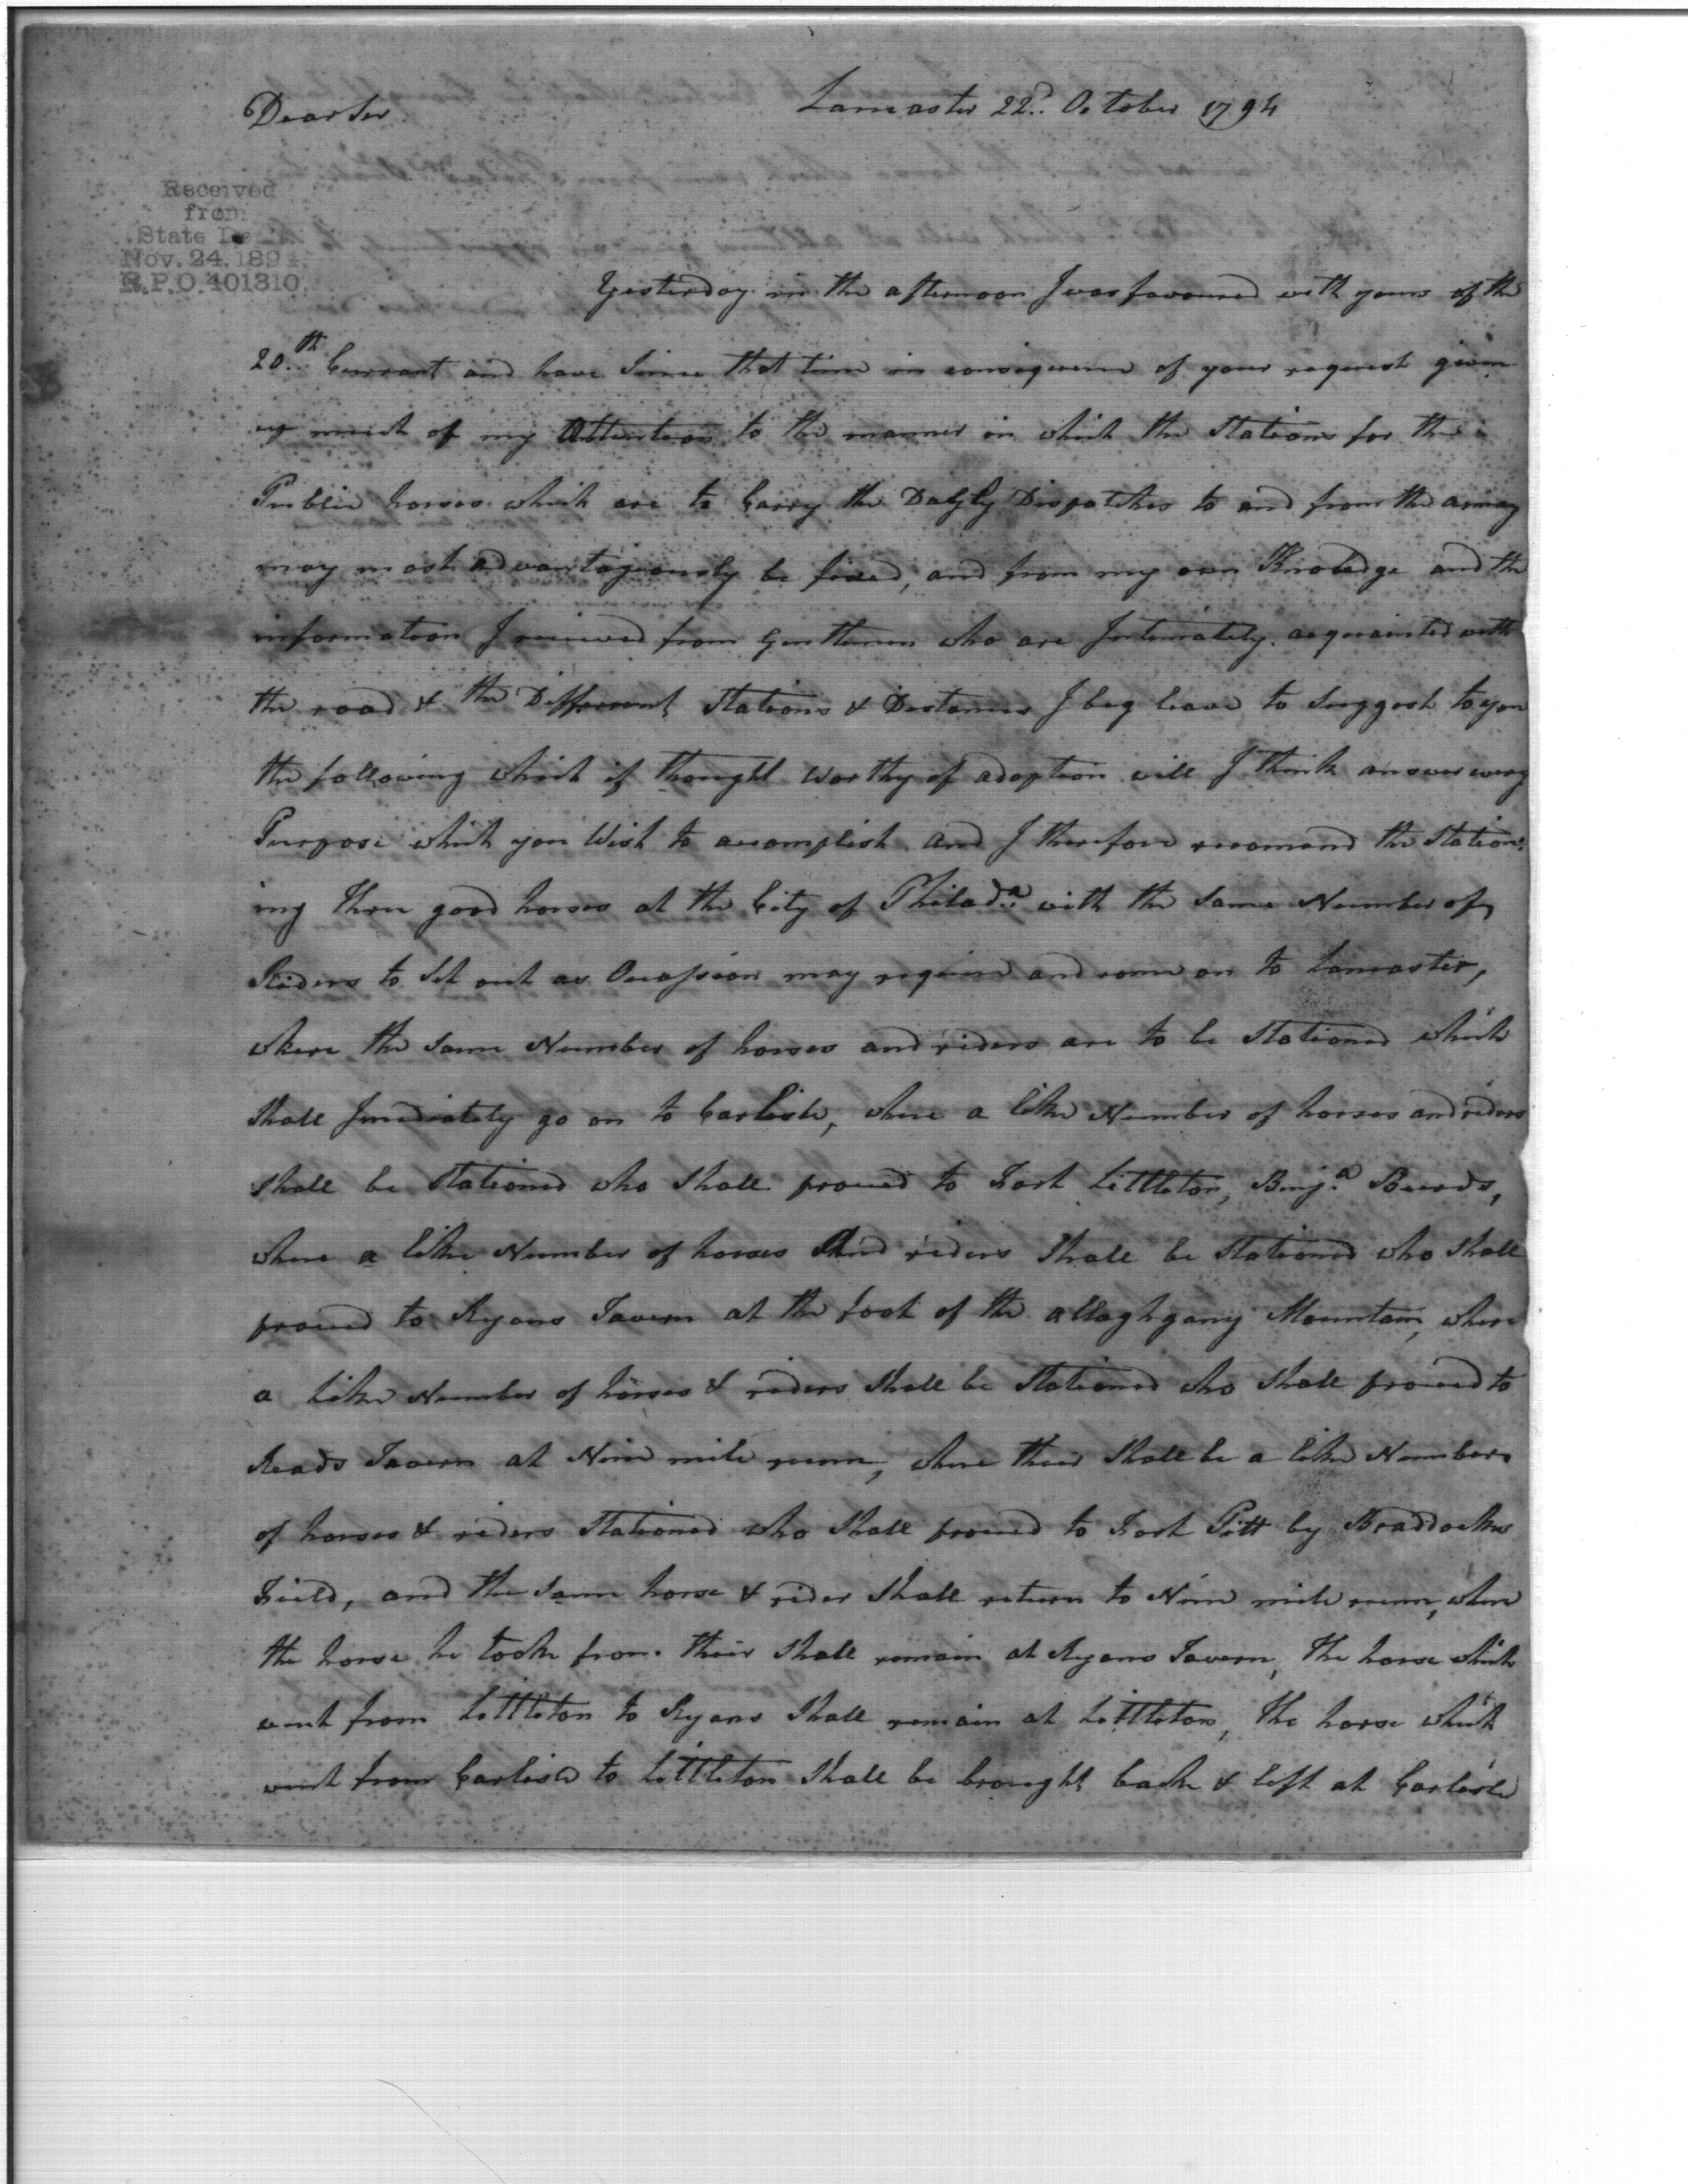 Dear Sir
Lancaster 22d. October 1794
Received
from
State De
Nov. 24. 189
R.P.O. 401310.
Yesterday in the afternoon I was favoured with yours of the
20.th Currant and have Since that time in consequence of your request given
up much of my Attention to the manner in which the Stations for the
Public horses which are to Carry the Dayly Dispatches to and from the army
may most advantageously be fixed, and from my own Knowledge and the
information I received from Gentlemen who are Intimately acquainted with
the road & the Differrent Stations & Distances I beg leave to Suggest to you
the following which if thought Worthy of adoption will I think answer every
Purpose which you Wish to accomplish and I therefore recomend the Station=
ing three good horses at the City of Philad.a with the Same Number of
Riders to Set out as Occassion may require and come on to Lancaster,
where the Same Number of horses and riders are to be Stationed which
Shall Imediately go on to Carlisle, where a like Number of horses and riders
Shall be Stationed who Shall proceed to Fort Littleton, Benj.a Beards,
where a like Number of horses And riders Shall be Stationed who Shall
proceed to Ryans Tavern at the foot of the allaghgany Mountain, where
a like Number of horses & riders Shall be Stationed who Shall proceed to
Reads Tavern at Nine mile runn, where their Shall be a like Number
of horses & riders Stationed who Shall proceed to Fort Pitt by Braddocks
Field, and the Same horse & rider Shall return to Nine mile runn, when
the horse he took from their Shall remain at Ryans Tavern, The horse which
went from Littleton to Ryans Shall remain at Littleton, The horse which
went from Carlisle to Littleton Shall be brought back & left at Carlisle